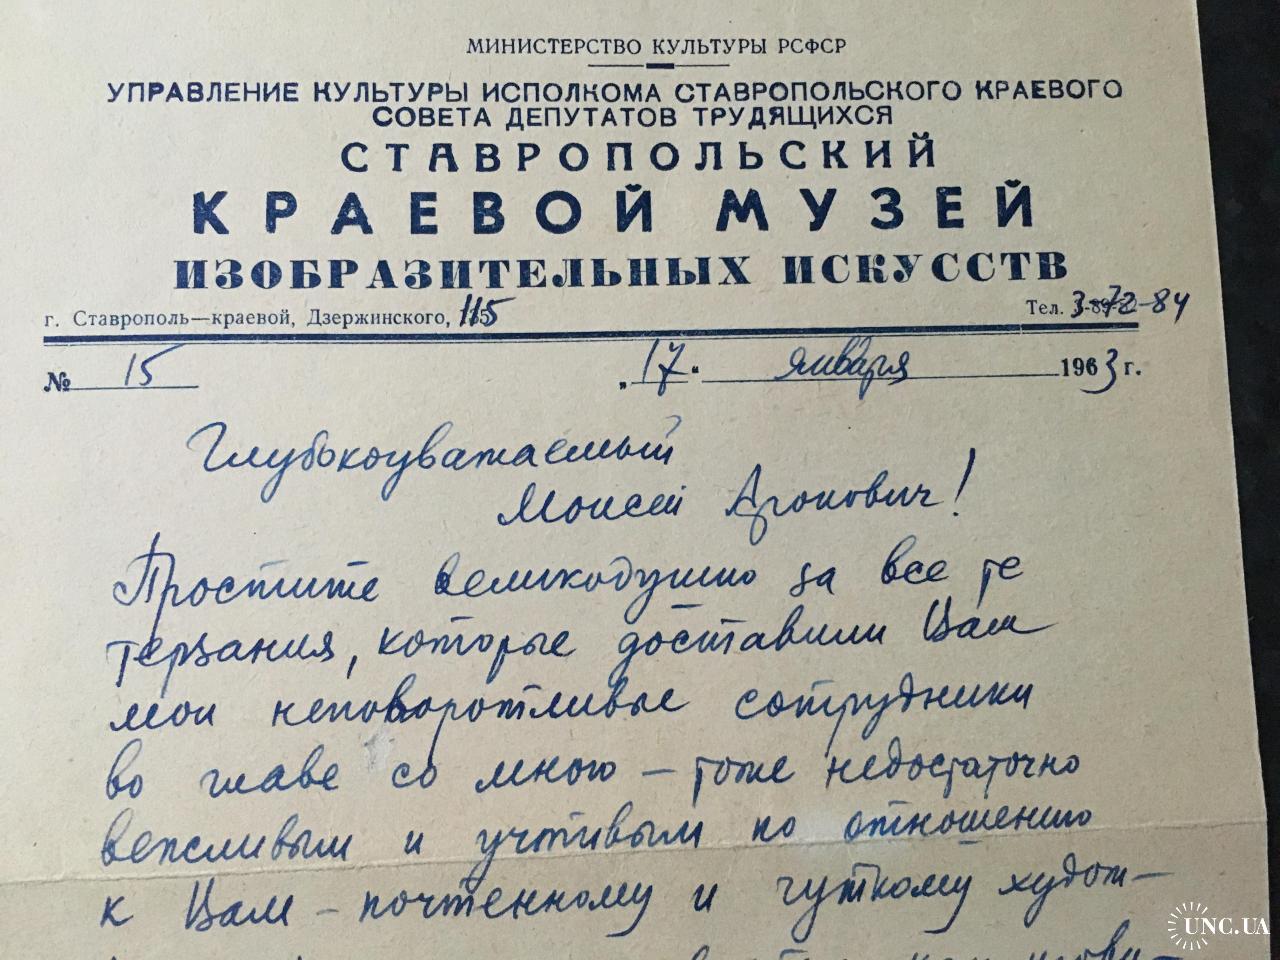 МИНИСТЕРСТВО КУЛЬТУРЫ РСФСР
УПРАВЛЕНИЕ КУЛЬТУРЫ ИСПОЛКОМА СТАВРОПОЛЬСКОГО КРАЕВОГО
СОВЕТА ДЕПУТАТОВ ТРУДЯЩИХСЯ
СТАВРОПОЛЬСКИЙ
КРАЕВОЙ МУЗЕЙ
ИЗОБРАЗИТЕЛЬНЫХ ИСКУССТВ
г. Ставрополь—краевой, Дзержинского, 115
Тел. 3-72-84
№ 15 „17“ января 1963 г.
Глубокоуважаемый
Моисей Аронович!
Простите великодушно за все те
терзания, которые доставили Вам
мои неповоротливые сотрудники
во главе со мною — тоже недостаточно
вежливым и учтивым по отношению
к Вам — почтенному и чуткому худож-
UNC.UA